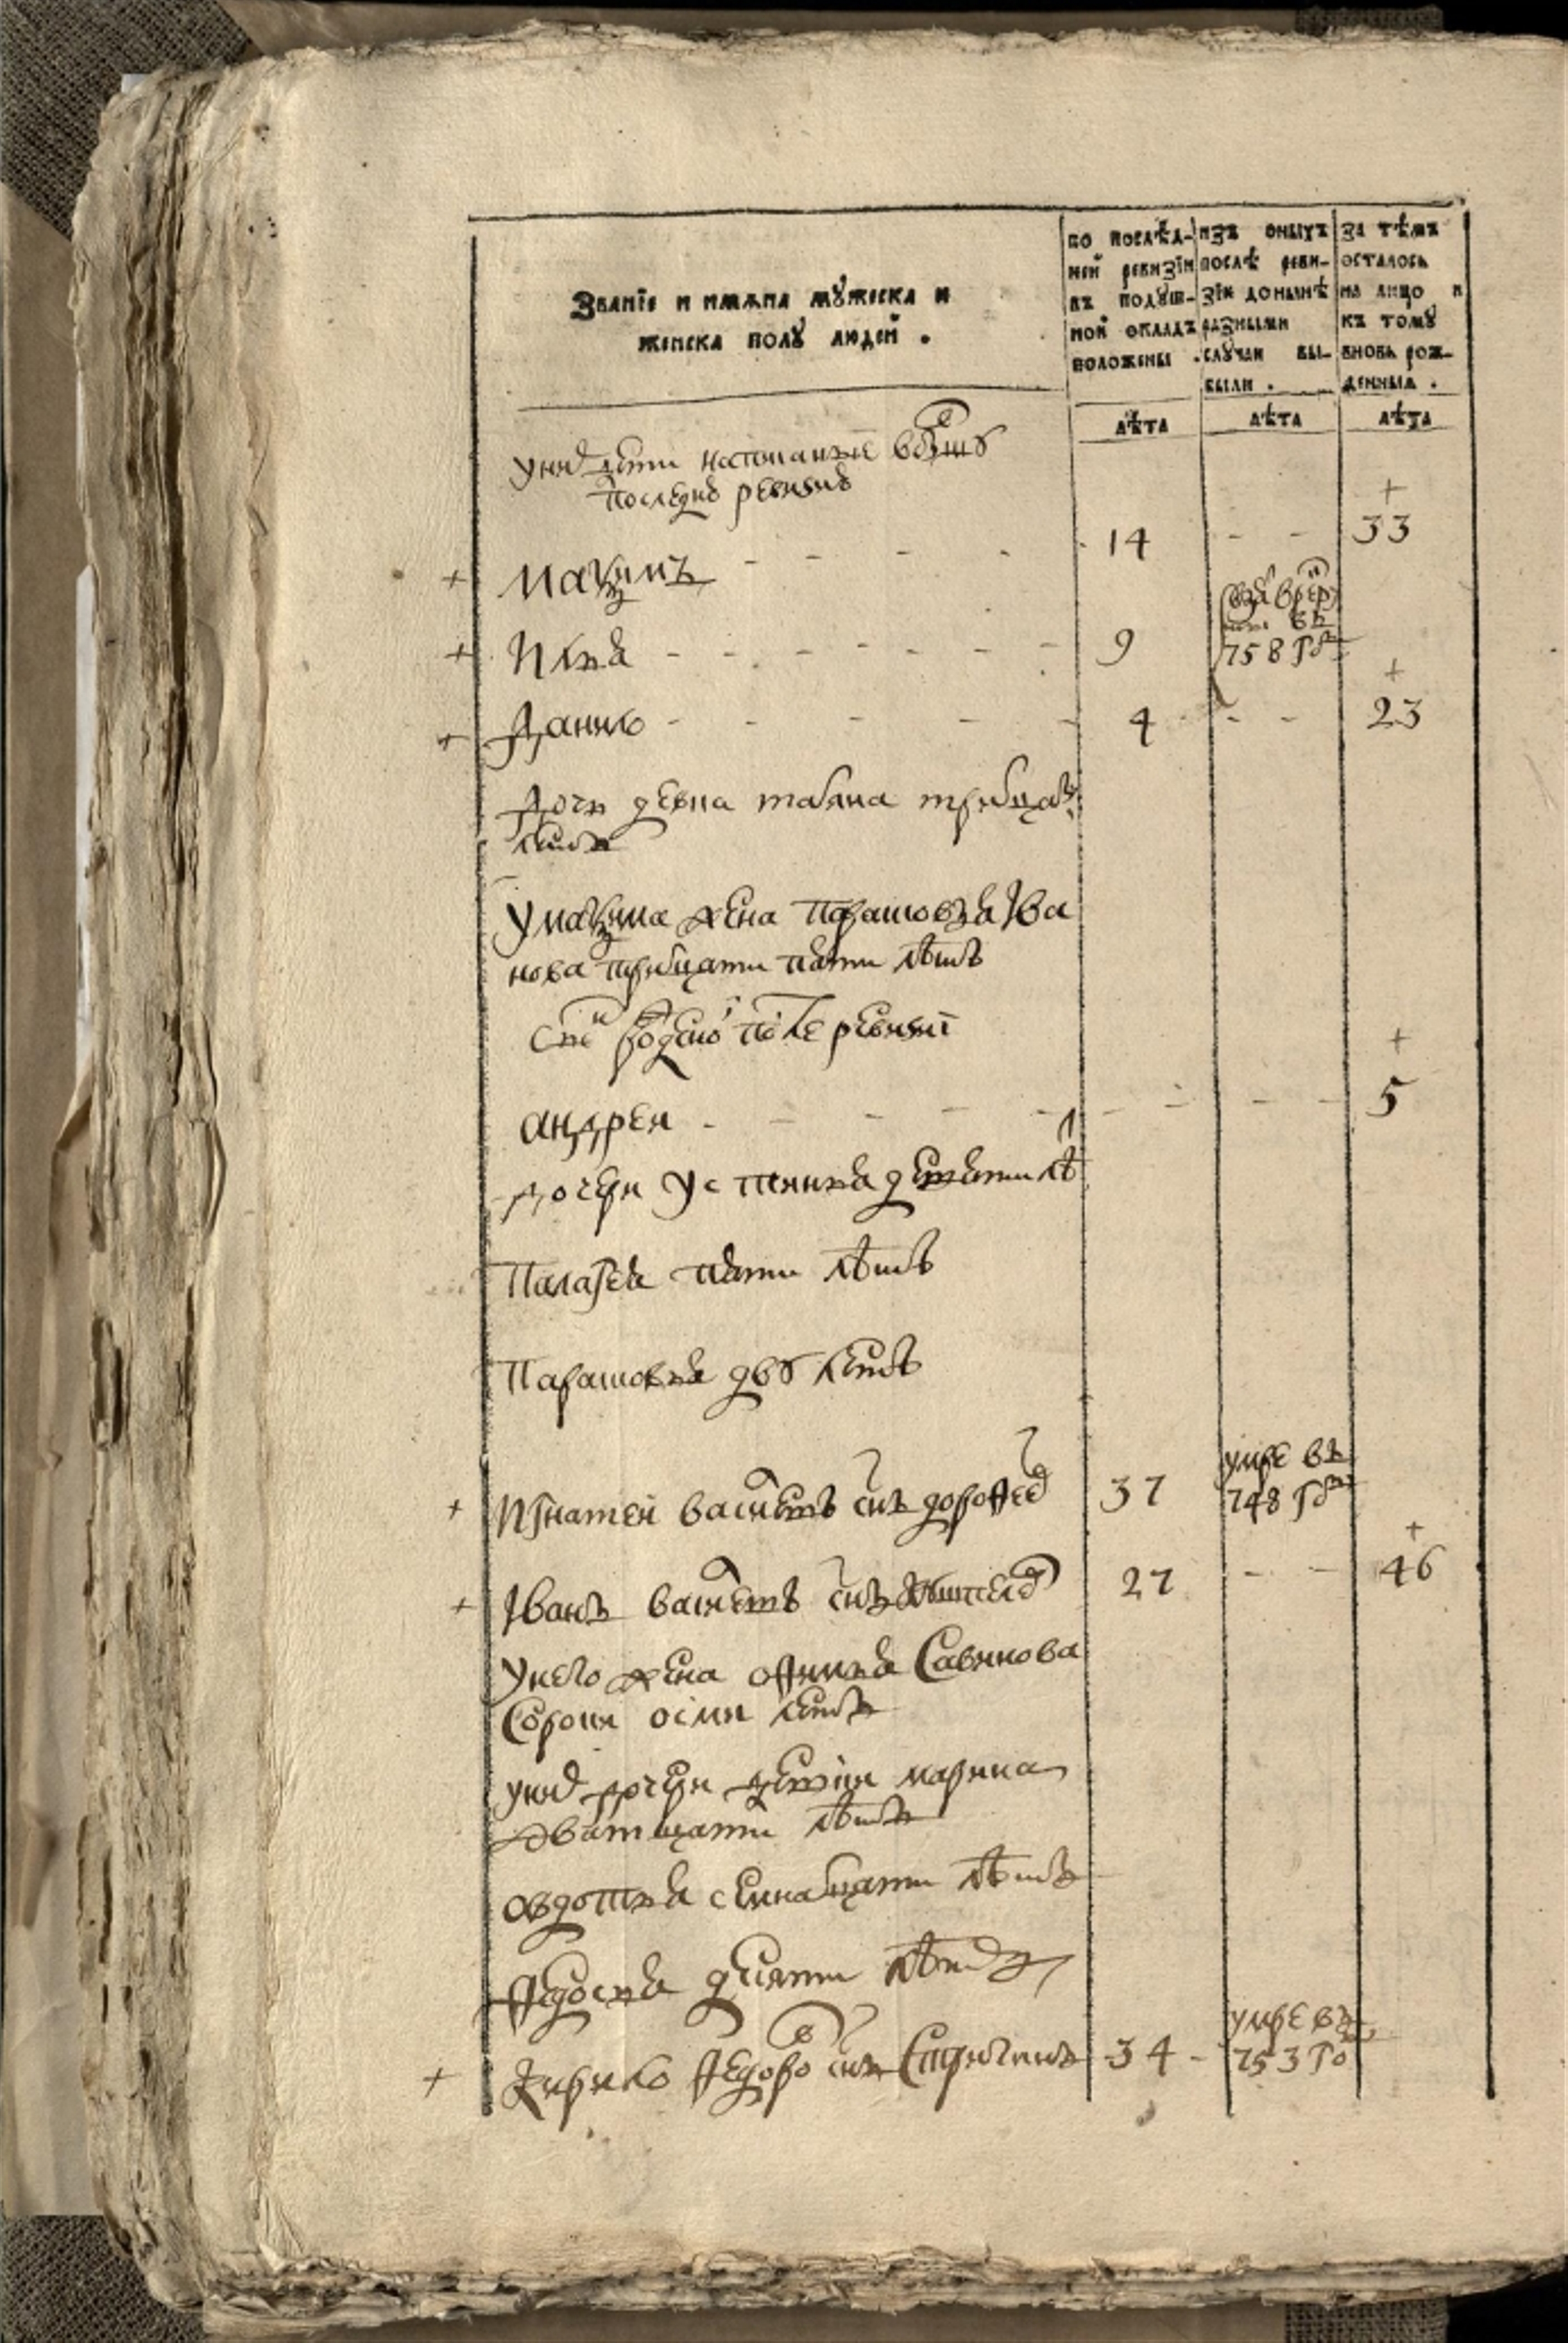 Званїе и имѧна мꙋжеска и
женска полꙋ людей .
по послѣд-
ней ревизїи
въ подꙋш-
ной окладъ
положены .
изъ оныхъ
послѣ реви-
зїи донынѣ
разными
слꙋчаи вы-
были .
за тѣмъ
осталось
на лицо и
къ томꙋ
вновь рож-
денныѧ .
лѣта лѣта лѣта
у них дети написанные в
последню ревизию
+
+ Мазимъ - - - - 14 - - 33
+ Илья - - - - - - 9 взят в рекр
въ
758 год
+
+ Данило - - - - - 4 - - 23
дочь девка татьяна тритцат
летъ
у мазима жена парасковья Ива
нова тритцати пяти лѣтъ
сынъ рожденой после ревизиї
+
андреи - - - - - - - - 5
дочери устинья девяти лѣ
Палагея пяти лѣтъ
Парасковья двух летъ
+ Игнатеи васильевъ снъ дорофеев 37 умре въ
748 год
+
+ Іванъ васильевъ снъ 27 - - 46
у него жена офимья Савинова
сорока осми летъ
у них дочери девки марина
дватцати лѣтъ
овдотья семнатцати лѣтъ
Федосья десяти лѣтъ
+ Кирило Федоров снъ 34 - умре въ
753 го